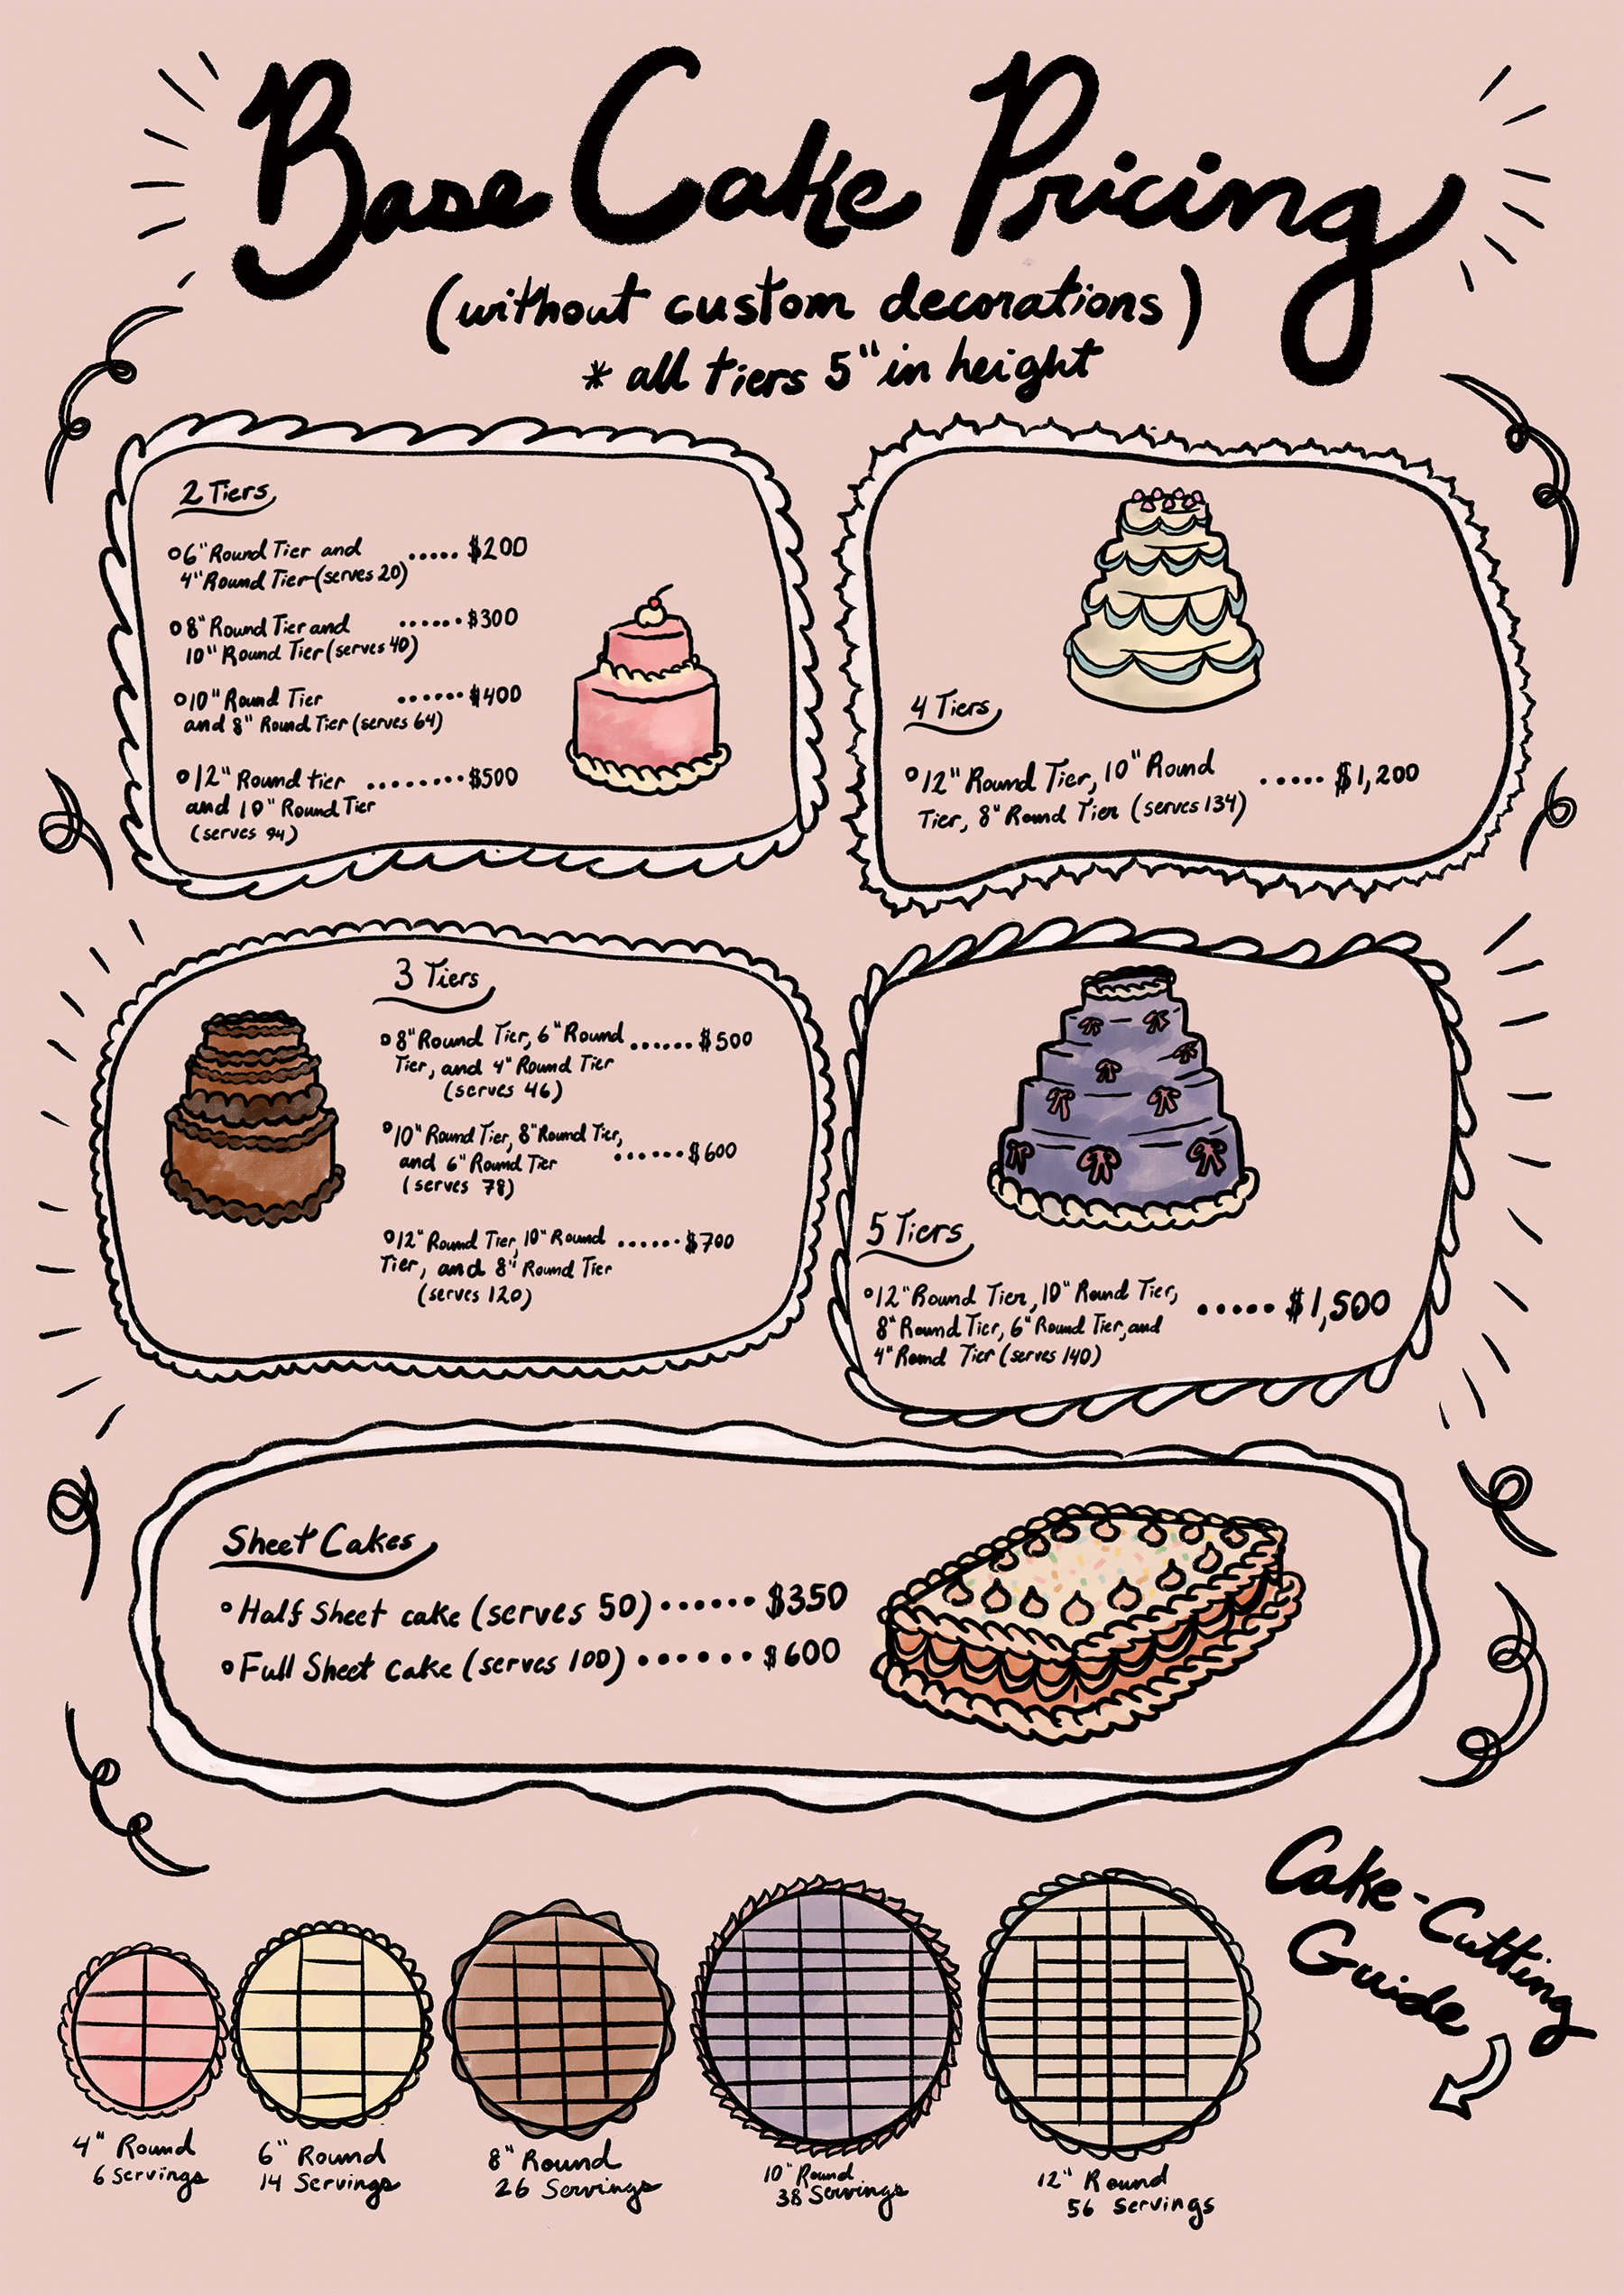 Base Cake Pricing
(without custom decorations)
* all tiers 5" in height
2 Tiers
6" Round Tier and ..... $200
4" Round Tier (serves 20)
8" Round Tier and ...... $300
10" Round Tier (serves 40)
10" Round Tier ...... $400
and 8" Round Tier (serves 64)
12" Round tier ........ $500
and 10" Round Tier
(serves 94)
4 Tiers
12" Round Tier, 10" Round ..... $1,200
Tier, 8" Round Tier (serves 134)
3 Tiers
8" Round Tier, 6" Round ...... $500
Tier, and 4" Round Tier
(serves 46)
10" Round Tier, 8" Round Tier, ...... $600
and 6" Round Tier
(serves 78)
12" Round Tier, 10" Round ...... $700
Tier, and 8" Round Tier
(serves 120)
5 Tiers
12" Round Tier, 10" Round Tier, ..... $1,500
8" Round Tier, 6" Round Tier, and
4" Round Tier (serves 140)
Sheet Cakes
Half Sheet cake (serves 50) ...... $350
Full Sheet Cake (serves 100) ...... $600
Cake-Cutting
Guide
4" Round
6 Servings
6" Round
14 Servings
8" Round
26 Servings
10" Round
38 Servings
12" Round
56 Servings